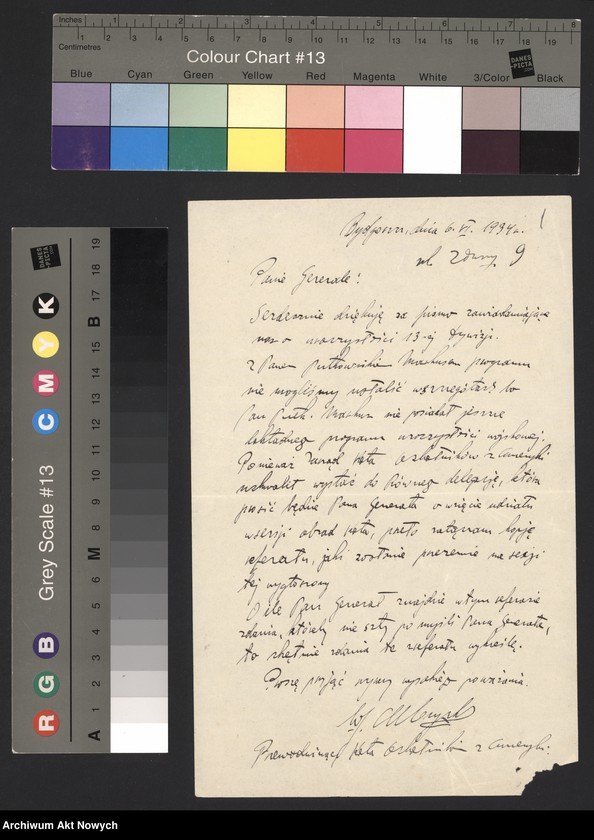 Inches 1 2 3 4 5 6 7 8
Centimetres 1 2 3 4 5 6 7 8 9 10 11 12 13 14 15 16 17 18 19
Colour Chart #13
DANES-PICTA
Blue Cyan Green Yellow Red Magenta White 3/Color Black
DANES-PICTA
Grey Scale #13
R G B C M Y K
A 1 2 3 4 5 6 M 8 9 10 11 12 13 14 15 B 17 18 19
dnia 6. VI. 1934 r.
ul. Zduny 9
Panie Generale!
Serdecznie dziękuję za pismo zawiadamiające
nas o uroczystości 13-ej Dywizji.
Z Panem programu
nie mogliśmy ustalić bo
Pan nie posiadał jeszcze
dokładnego programu uroczystości wojskowej.
Ponieważ Zarząd Koła Ochotników z Ameryki
uchwalił wysłać do Równego delegację, która
prosić będzie Pana Generała o wzięcie udziału
w sesji obrad Koła, przeto załączam kopję
referatu, jaki zostanie przezemnie na sesji
tej wygłoszony
O ile Pan Generał znajdzie w tym referacie
zdania, któreby nie szły po myśli Pana Generała,
to chętnie zdania te z referatu wykreślę.
Proszę przyjąć wyrazy wysokiego poważania.
Przewodniczący Koła Ochotników z Ameryki.
Archiwum Akt Nowych